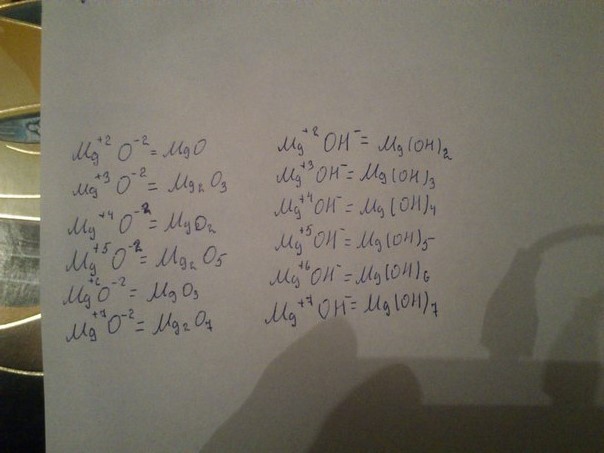 Mg⁺² O⁻² = MgO
Mg⁺³ O⁻² = Mg₂O₃
Mg⁺⁴ O⁻² = MgO₂
Mg⁺⁵ O⁻² = Mg₂O₅
Mg⁺⁶ O⁻² = MgO₃
Mg⁺⁷ O⁻² = Mg₂O₇
Mg⁺² OH⁻ = Mg(OH)₂
Mg⁺³ OH⁻ = Mg(OH)₃
Mg⁺⁴ OH⁻ = Mg(OH)₄
Mg⁺⁵ OH⁻ = Mg(OH)₅
Mg⁺⁶ OH⁻ = Mg(OH)₆
Mg⁺⁷ OH⁻ = Mg(OH)₇